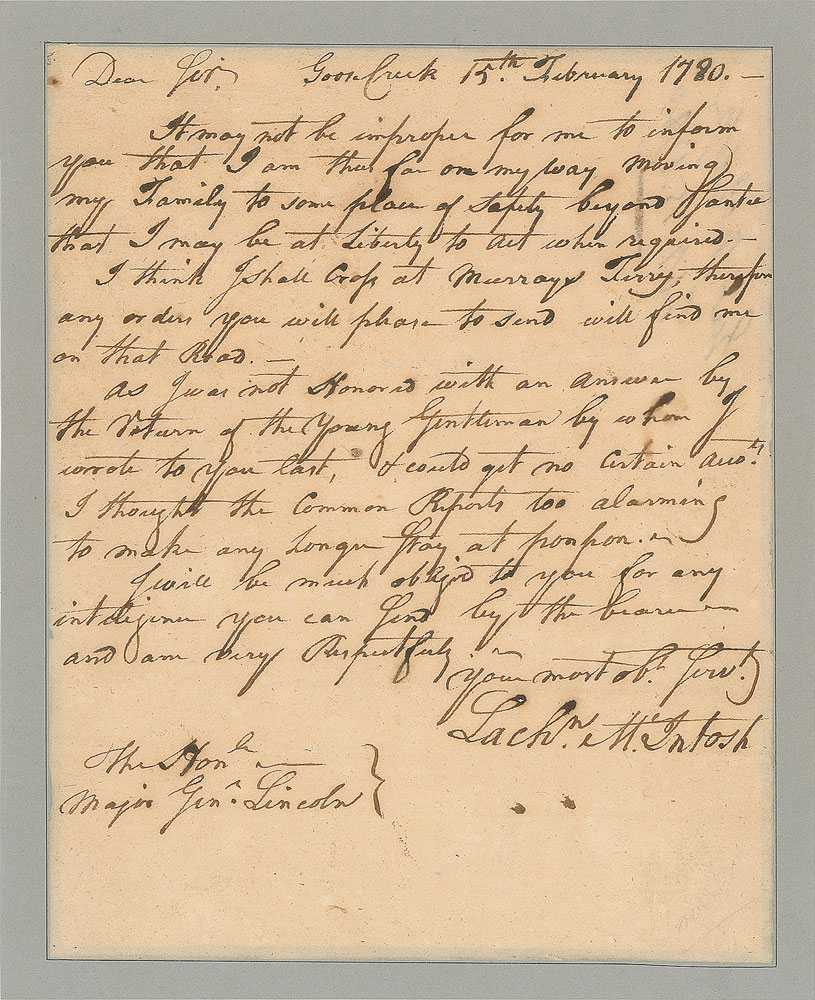 Dear Sir, Goose Creek 15.th February 1780. —
It may not be improper for me to inform
you that I am thus far on my way moving
my Family to some place of Safety beyond Santee
that I may be at Liberty to Act when required. —
I think I shall Cross at Murrays Ferry, therefore
any orders you will please to send will find me
on that Road. —
As I was not Honored with an Answer by
the Return of the Young Gentleman by whom I
wrote to you last, & could get no Certain Acco.ts
I thought the Common Reports too alarming
to make any Longer Stay at ponpon. —
I will be much obliged to you for any
inteligence you can Send by the bearer —
and am very Respectfuly —
your most ob.t Serv.t
Lachn. McIntosh
The Hon.le —
Major Gen.l Lincoln }